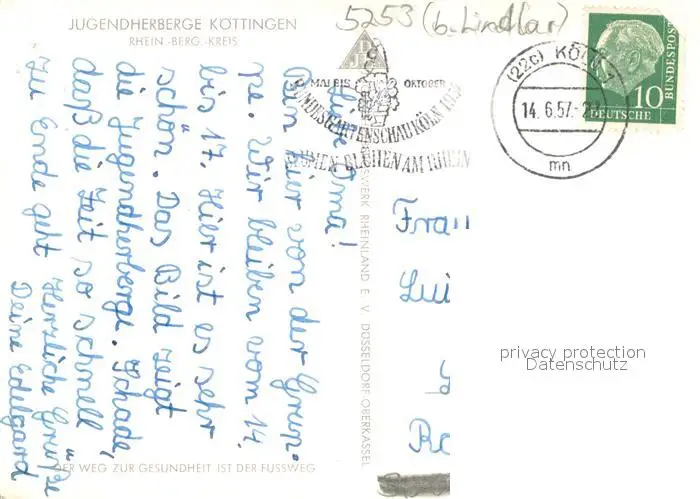 JUGENDHERBERGE KÖTTINGEN
RHEIN.-BERG.-KREIS
5253 (b. Lindlar)
MAI BIS OKTOBER
BUNDESGARTENSCHAU KÖLN
BLÜHEN AM RHEIN
(22c) KÖLN 1
14. 6. 57.
mn
10
DEUTSCHE
BUNDESPOST
Liebe Oma!
Bin hier von der Grup-
pe. Wir bleiben vom 14.
bis 17. Hier ist es sehr
schön. Das Bild zeigt
die Jugendherberge. Schade,
daß die Zeit so schnell
zu Ende geht.
Herzliche Grüße
Deine Edelgard
RHEINLAND E. V. DÜSSELDORF-OBERKASSEL
Frau
Lui
DER WEG ZUR GESUNDHEIT IST DER FUSSWEG
privacy protection
Datenschutz